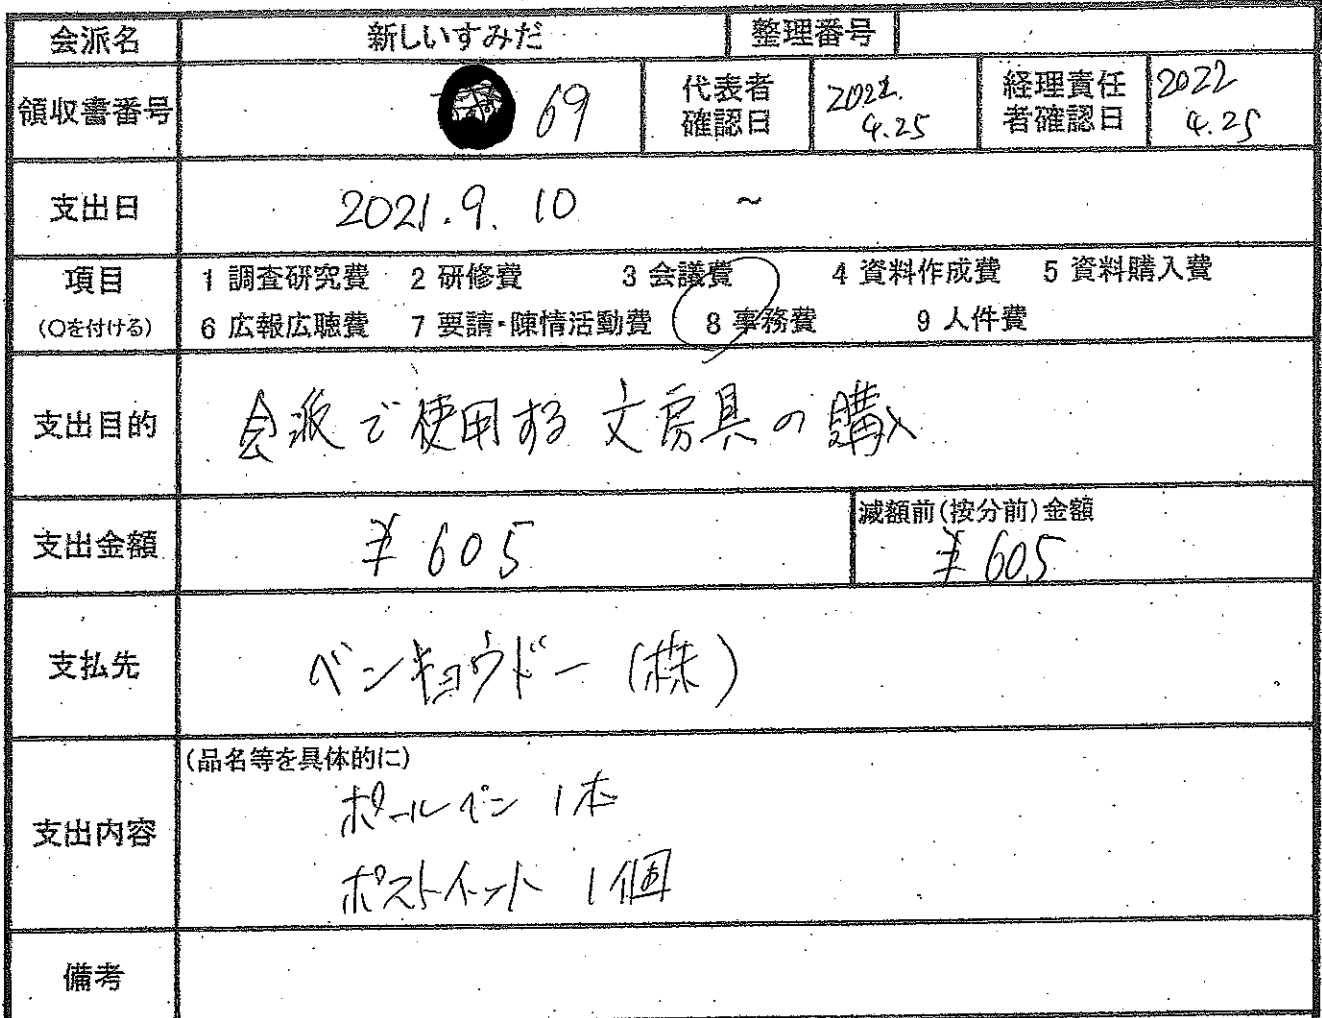 会派名 新しいすみだ 整理番号
領収書番号 69 代表者確認日 2022. 4.25 経理責任者確認日 2022 4.25
支出日 2021.9.10 ~
項目 1 調査研究費 2 研修費 3 会議費 4 資料作成費 5 資料購入費
(○を付ける) 6 広報広聴費 7 要請・陳情活動費 8 事務費 9 人件費
支出目的 会派で使用する文房具の購入
減額前(按分前)金額
支出金額 ¥605 ¥605
支払先 ベンキョウドー(株)
(品名等を具体的に)
支出内容 ボールペン 1本
ポストイット 1個
備考